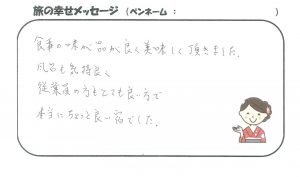 旅の幸せメッセージ (ペンネーム : )
食事の味が品が良く美味しく頂きました.
風呂も気持良く
従業員の方もとても良い方で
本当にちょっと良い宿でした.